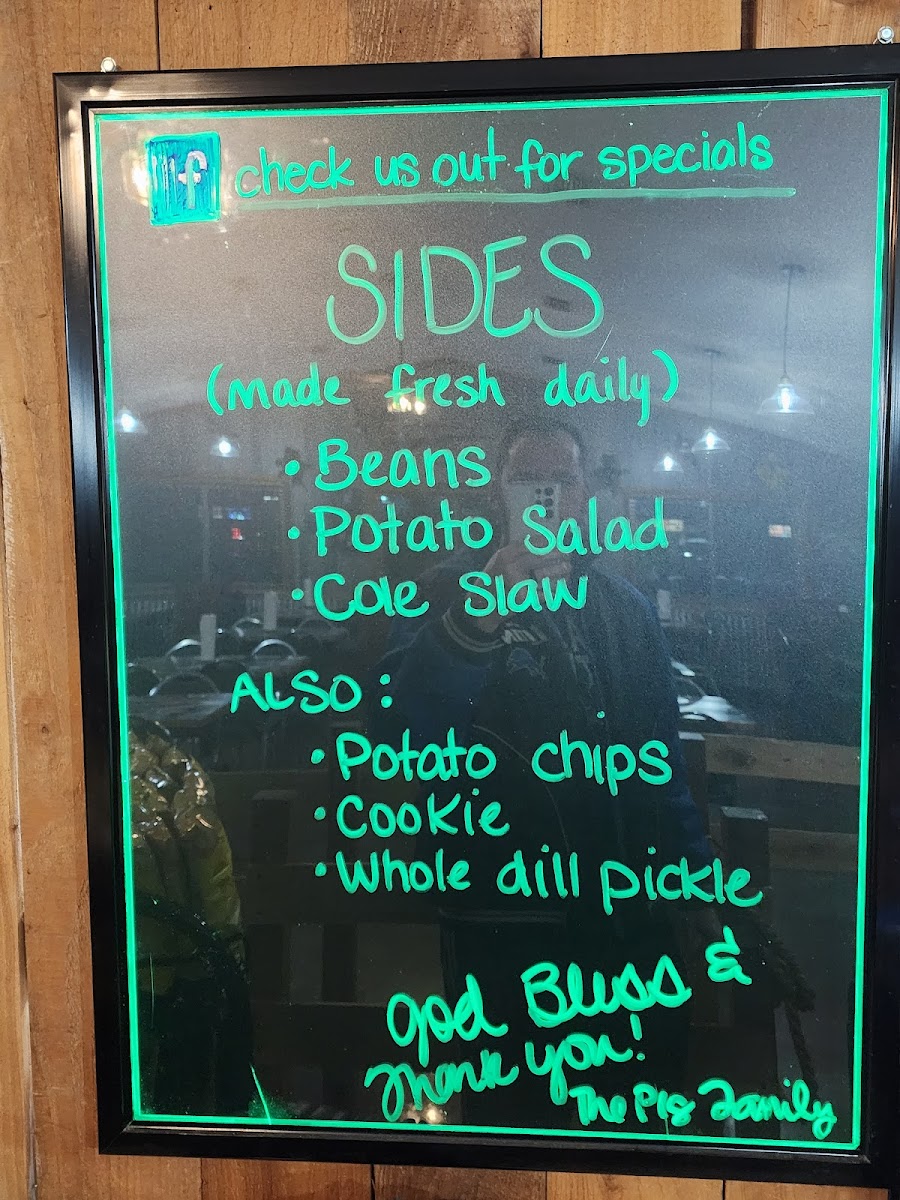 f check us out for specials
SIDES
(made fresh daily)
• Beans
• Potato Salad
• Cole Slaw
ALSO:
• Potato chips
• Cookie
• Whole dill pickle
God Bless &
Thank you!
The Pig Family